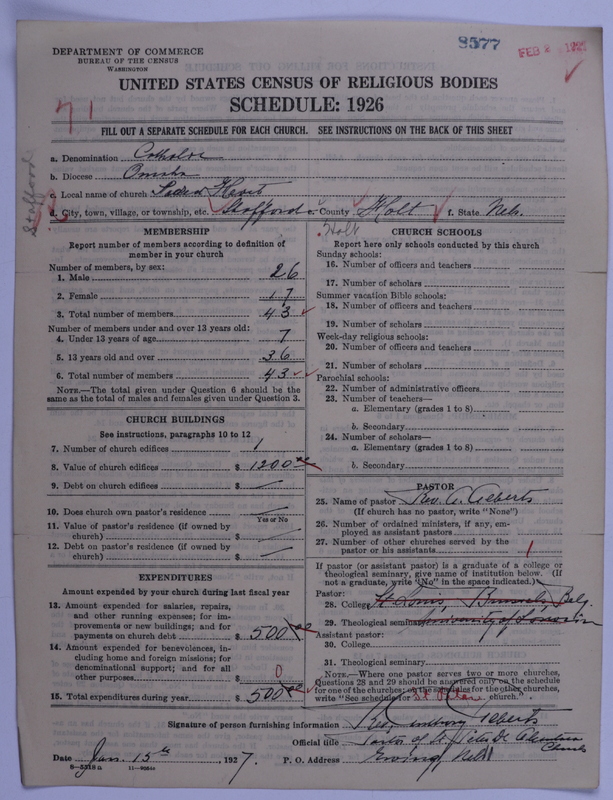 8577
FEB 2 1927
DEPARTMENT OF COMMERCE
BUREAU OF THE CENSUS
WASHINGTON
UNITED STATES CENSUS OF RELIGIOUS BODIES
SCHEDULE: 1926
71
FILL OUT A SEPARATE SCHEDULE FOR EACH CHURCH. SEE INSTRUCTIONS ON THE BACK OF THIS SHEET
a. Denomination Catholic
b. Diocese Omaha
c. Local name of church Sacred Heart
d. City, town, village, or township, etc. Stafford e. County Holt f. State Nebr.
Stafford
Holt
MEMBERSHIP
Report number of members according to definition of
member in your church
Number of members, by sex:
1. Male 26
2. Female 17
3. Total number of members 43
Number of members under and over 13 years old:
4. Under 13 years of age 7
5. 13 years old and over 36
6. Total number of members 43
NOTE.—The total given under Question 6 should be the
same as the total of males and females given under Question 3.
CHURCH BUILDINGS
See instructions, paragraphs 10 to 12
7. Number of church edifices 1
8. Value of church edifices $ 1200
9. Debt on church edifices $
10. Does church own pastor's residence
Yes or No
11. Value of pastor's residence (if owned by
church) $
12. Debt on pastor's residence (if owned by
church) $
EXPENDITURES
Amount expended by your church during last fiscal year
13. Amount expended for salaries, repairs,
and other running expenses; for im-
provements or new buildings; and for
payments on church debt $ 500
14. Amount expended for benevolences, in-
cluding home and foreign missions; for
denominational support; and for all
other purposes $ 0
15. Total expenditures during year $ 500
CHURCH SCHOOLS
Report here only schools conducted by this church
Sunday schools:
16. Number of officers and teachers
17. Number of scholars
Summer vacation Bible schools:
18. Number of officers and teachers
19. Number of scholars
Week-day religious schools:
20. Number of officers and teachers
21. Number of scholars
Parochial schools:
22. Number of administrative officers
23. Number of teachers—
a. Elementary (grades 1 to 8)
b. Secondary
24. Number of scholars—
a. Elementary (grades 1 to 8)
b. Secondary
PASTOR
25. Name of pastor Rev. A.
(If church has no pastor, write "None")
26. Number of ordained ministers, if any, em-
ployed as assistant pastors
27. Number of other churches served by the
pastor or his assistants 1
If pastor (or assistant pastor) is a graduate of a college or
theological seminary, give name of institution below. (If
not a graduate, write "No" in the space indicated.)
Pastor:
28. College St Louis, Brussels, Belg.
29. Theological seminary University of Louvain
Assistant pastor:
30. College
31. Theological seminary
NOTE.—Where one pastor serves two or more churches,
Questions 28 and 29 should be answered only on the schedule
for one of the churches; on the schedules for the other churches,
write "See schedule for St Peter church."
Signature of person furnishing information Rev. Anthony
Official title Pastor of St. Peter De Alcantara
Church
Date Jan. 15th 1927. P. O. Address Ewing Nebr
8—5318 a 11—9064